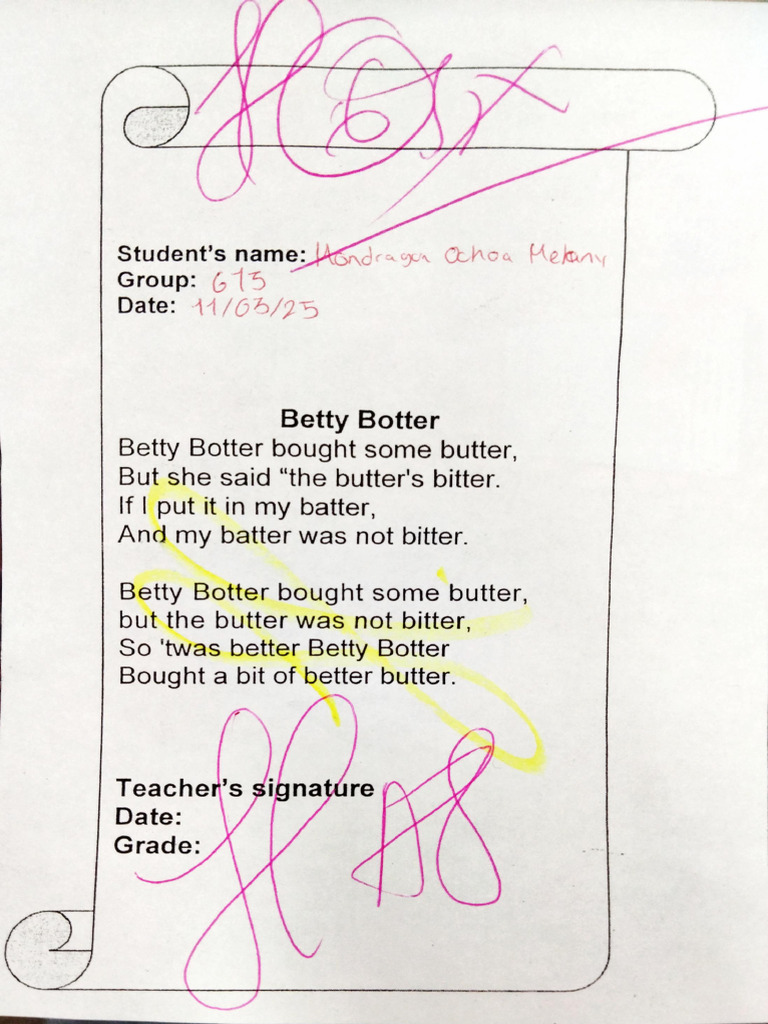 Student's name: Mondragon Ochoa Melany
Group: 613
Date: 11/03/25
Betty Botter
Betty Botter bought some butter,
But she said “the butter's bitter.
If I put it in my batter,
And my batter was not bitter.
Betty Botter bought some butter,
but the butter was not bitter,
So 'twas better Betty Botter
Bought a bit of better butter.
Teacher's signature
Date:
Grade: